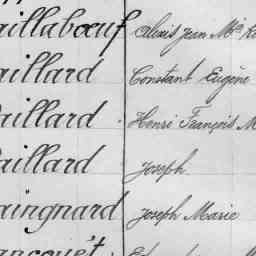 aillabœuf Alexis Jean Mie
aillard Constant Eugène
aillard Henri François M
aillard Joseph
aingnard Joseph Marie
ancouët